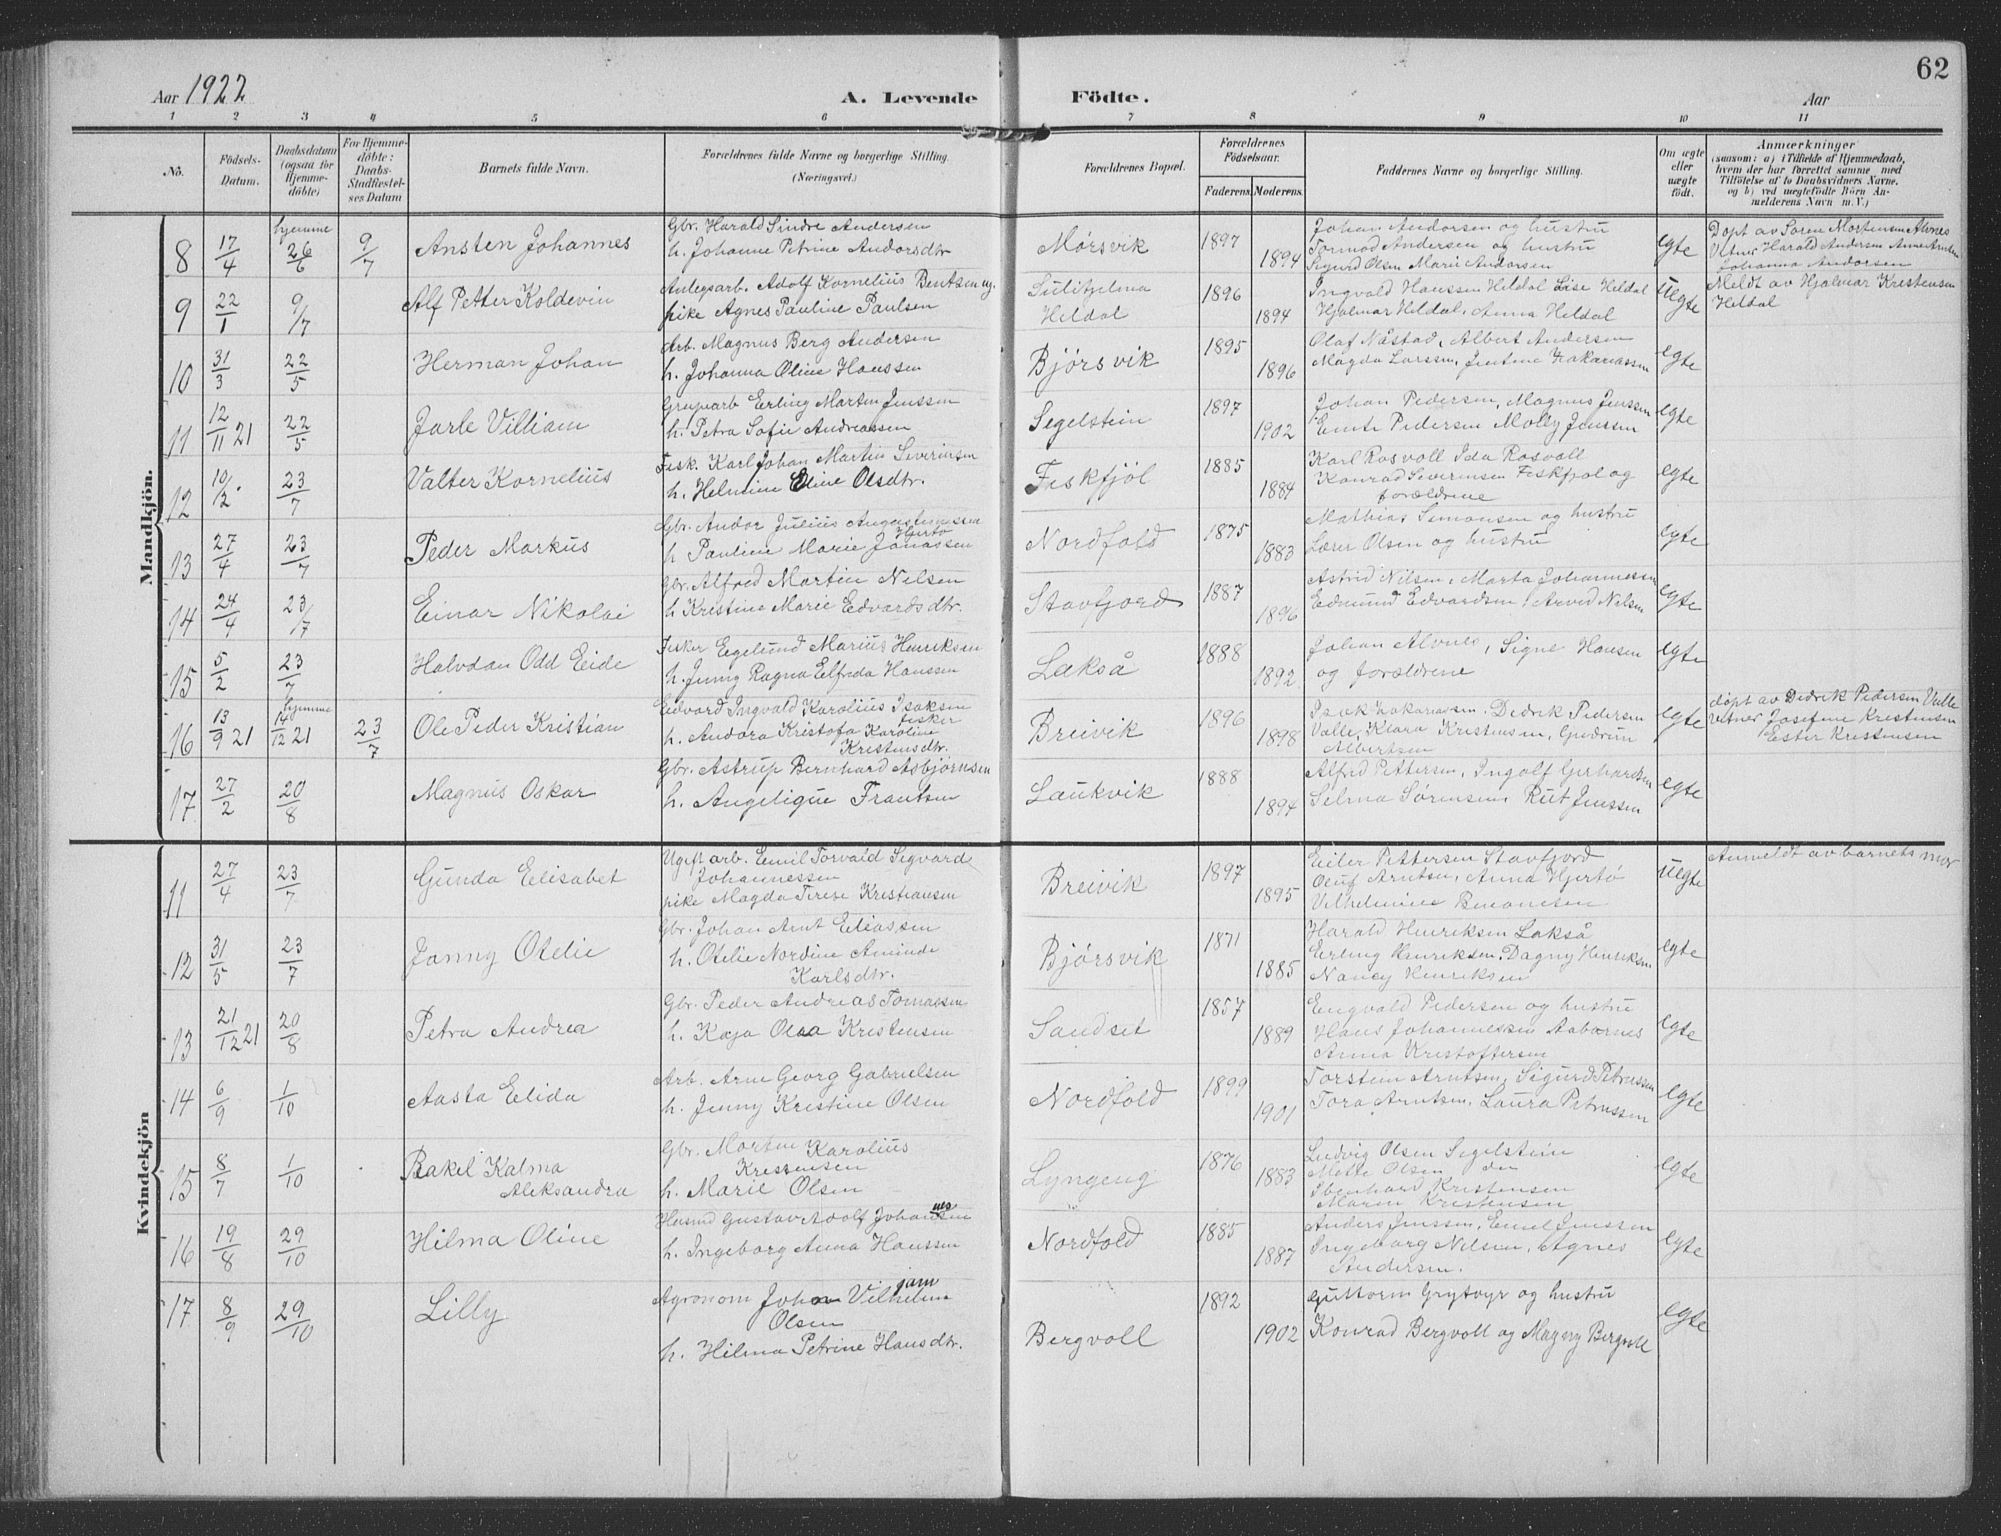 62
Aar 1922 A. Levende Födte. Aar
1 2 3 4 5 6 7 8 9 10 11
No.
Födsels-
Datum.
Daabsdatum
(ogsaa for
Hjemme-
döbte)
For Hjemme-
döbte:
Daabs-
Stadfæstel-
ses Datum
Barnets fulde Navn.
Forældrenes fulde Navne og borgerlige Stilling.
(Næringsvei.)
Forældrenes Bopæl.
Forældrenes
Födselsaar.
Faderens. Moderens.
Faddernes Navne og borgerlige Stilling.
Om ægte
eller
uægte
født.
Anmærkninger
(saasom: a) i Tilfælde af Hjemmedaab,
hvem der har forrettet samme, med
Tilföielse af to Daabsvidners Navne,
og b) ved uægtefödte Börn An-
melderens Navn m. V.)
Mandkjön.
8 17/4 hjemme 26/6 9/7 Ansten Johannes
Gbr. Harald Sindre Andersen
h. Johanne Petrine Andorsdtr
Mørsvik 1897 1894
Johan Andorsen og hustru
Tormod Andersen og hustru
Sigurd Olsen Marie Andorsen
egte
Døpt av Søren Mortensen Alvnes
Vitner Harald Andersen Anne
Johanna Andorsen
9 22/1 9/7 Alf Petter Koldevin
Anlegsarb. Adolf Kornelius Bentsen og
pike Agnes Pauline Paulsen
Sulitjelma
Heldal
1896 1894
Ingvald Hanssen Heldal Lise Heldal
Hjalmar Heldal, Anna Heldal
uegte
Meldt av Hjalmar Kristensen
Heldal
10 31/3 22/5 Herman Johan
Arb. Magnus Berg Andersen
h. Johanna Oline Hanssen
Bjørsvik 1895 1896
Olaf Nåstad, Albert Andersen
Magda Larssen, Jentine Zakariassen
egte
11 12/11 21 22/5 Jarle Villiam
Grubarb Erling Martin Jenssen
h. Petra Sofie Andreassen
Segelstein 1897 1902
Johan Pedersen, Magnus Jenssen
Pedersen Molly Jenssen
egte
12 10/2 23/7 Valter Kornelius
Fisk. Karl Johan Martin Severinsen
h. Helmine Eline Olsdtr.
Feskfjøl 1885 1884
Karl Rosvoll Ida Rosvoll
Konrad Severinsen Feskfjol og
forældrene
egte
13 27/4 23/7 Peder Markus
Gbr. Andor Julius Augustinussen
Hjertø
h Pauline Marie Jonassen
Nordfold 1875 1883
Mathias Simonsen og hustru
Lærer Olsen og hustru
egte
14 24/4 23/7 Einar Nikolai
Gbr. Alfred Martin Nilsen
h Kristine Marie Edvardsdtr.
Stavfjord 1887 1896
Astrid Nilsen, Marta Johannessen
Edmund Edvardsen, Arved Nilsen
egte
15 5/2 23/7 Halvdan Odd Eide
Fisker Egelund Marius Henriksen
h. Jenny Ragna Elfreda Hanssen
Lakså 1888 1892
Johan Alvnes, Signe Hansen
og forældrene
egte
16 13/9 21 hjemme 14/12 21 23/7 Ole Peder Kristian
Edvard Ingvald Karolius Isaksen
fisker
h. Andora Kristofa Karoline
Kristensdtr.
Breivik 1896 1898
Isak Zakariassen, Dedrik Pedersen
Valle, Klara Kristensen, Gudrun
Albertsen
egte
døpt av Dedrik Pedersen Valle
vitner Josefine Kristensen
Ester Kristensen
17 27/2 20/8 Magnus Oskar
Gbr. Astrup Bernhard Asbjørnsen
h. Angelique Frantsen
Laukvik 1888 1894
Alfred Pettersen, Ingolf Gerhardsen
Selma Sørensen, Rut Jenssen
egte
Kvindekjön
11 27/4 23/7 Gunda Elisabet
Ugift arb. Emil Torvald Sigvard
Johannessen
pike Magda Terese Kristiansen
Breivik 1897 1895
Eiler Pettersen Stavfjord
Oluf Arntsen, Anna Hjertø
Vilhelmine Benonisen
uegte
Anmeldt av barnets mor
12 31/5 23/7 Jonny Otelie
Gbr. Johan Arnt Eliassen
h. Otelie Nordine Aminde
Karlsdtr.
Bjørsvik 1871 1885
Harald Henriksen Lakså
Erling Henriksen, Dagny Henriksen
Nancy Henriksen
egte
13 21/12 21 20/8 Petra Andrea
Gbr. Peder Andreas Tomassen
h. Kaja Olea Kristensen
Sandset 1857 1889
Engvald Pedersen og hustru
Hans Johannessen Aabornes
Anna Kristoffersen
egte
14 6/9 1/10 Aasta Elida
Arb. Arne Georg Gabrielsen
h. Jenny Kristine Olsen
Nordfold 1899 1901
Torstein Arntsen, Sigurd Petrussen
Tora Arntsen, Laura Petrussen
egte
15 8/7 1/10 Rakel Kalma
Aleksandra
Gbr. Morten Karolius
Kristensen
h. Marie Olsen
Lyngeng 1876 1883
Ludvig Olsen Segelstein
Mette Olsen
Ibenhard Kristensen
Maren Kristensen
egte
16 19/8 29/10 Hilma Oline
Husmd Gustav Adolf Johansen
nes
h. Ingeborg Anna Hanssen
Nordfold 1885 1887
Anders Jenssen, Emil Jenssen
Ingeborg Nilsen, Agnes
Andersen.
egte
17 8/9 29/10 Lilly
Agronom Johan Vilhelm
jam
Olsen
h. Hilma Petrine Hansdtr.
Bergvoll 1892 1902
Guttorm Grytøyr og hustru
Konrad Bergvoll og Magny Bergvoll
egte